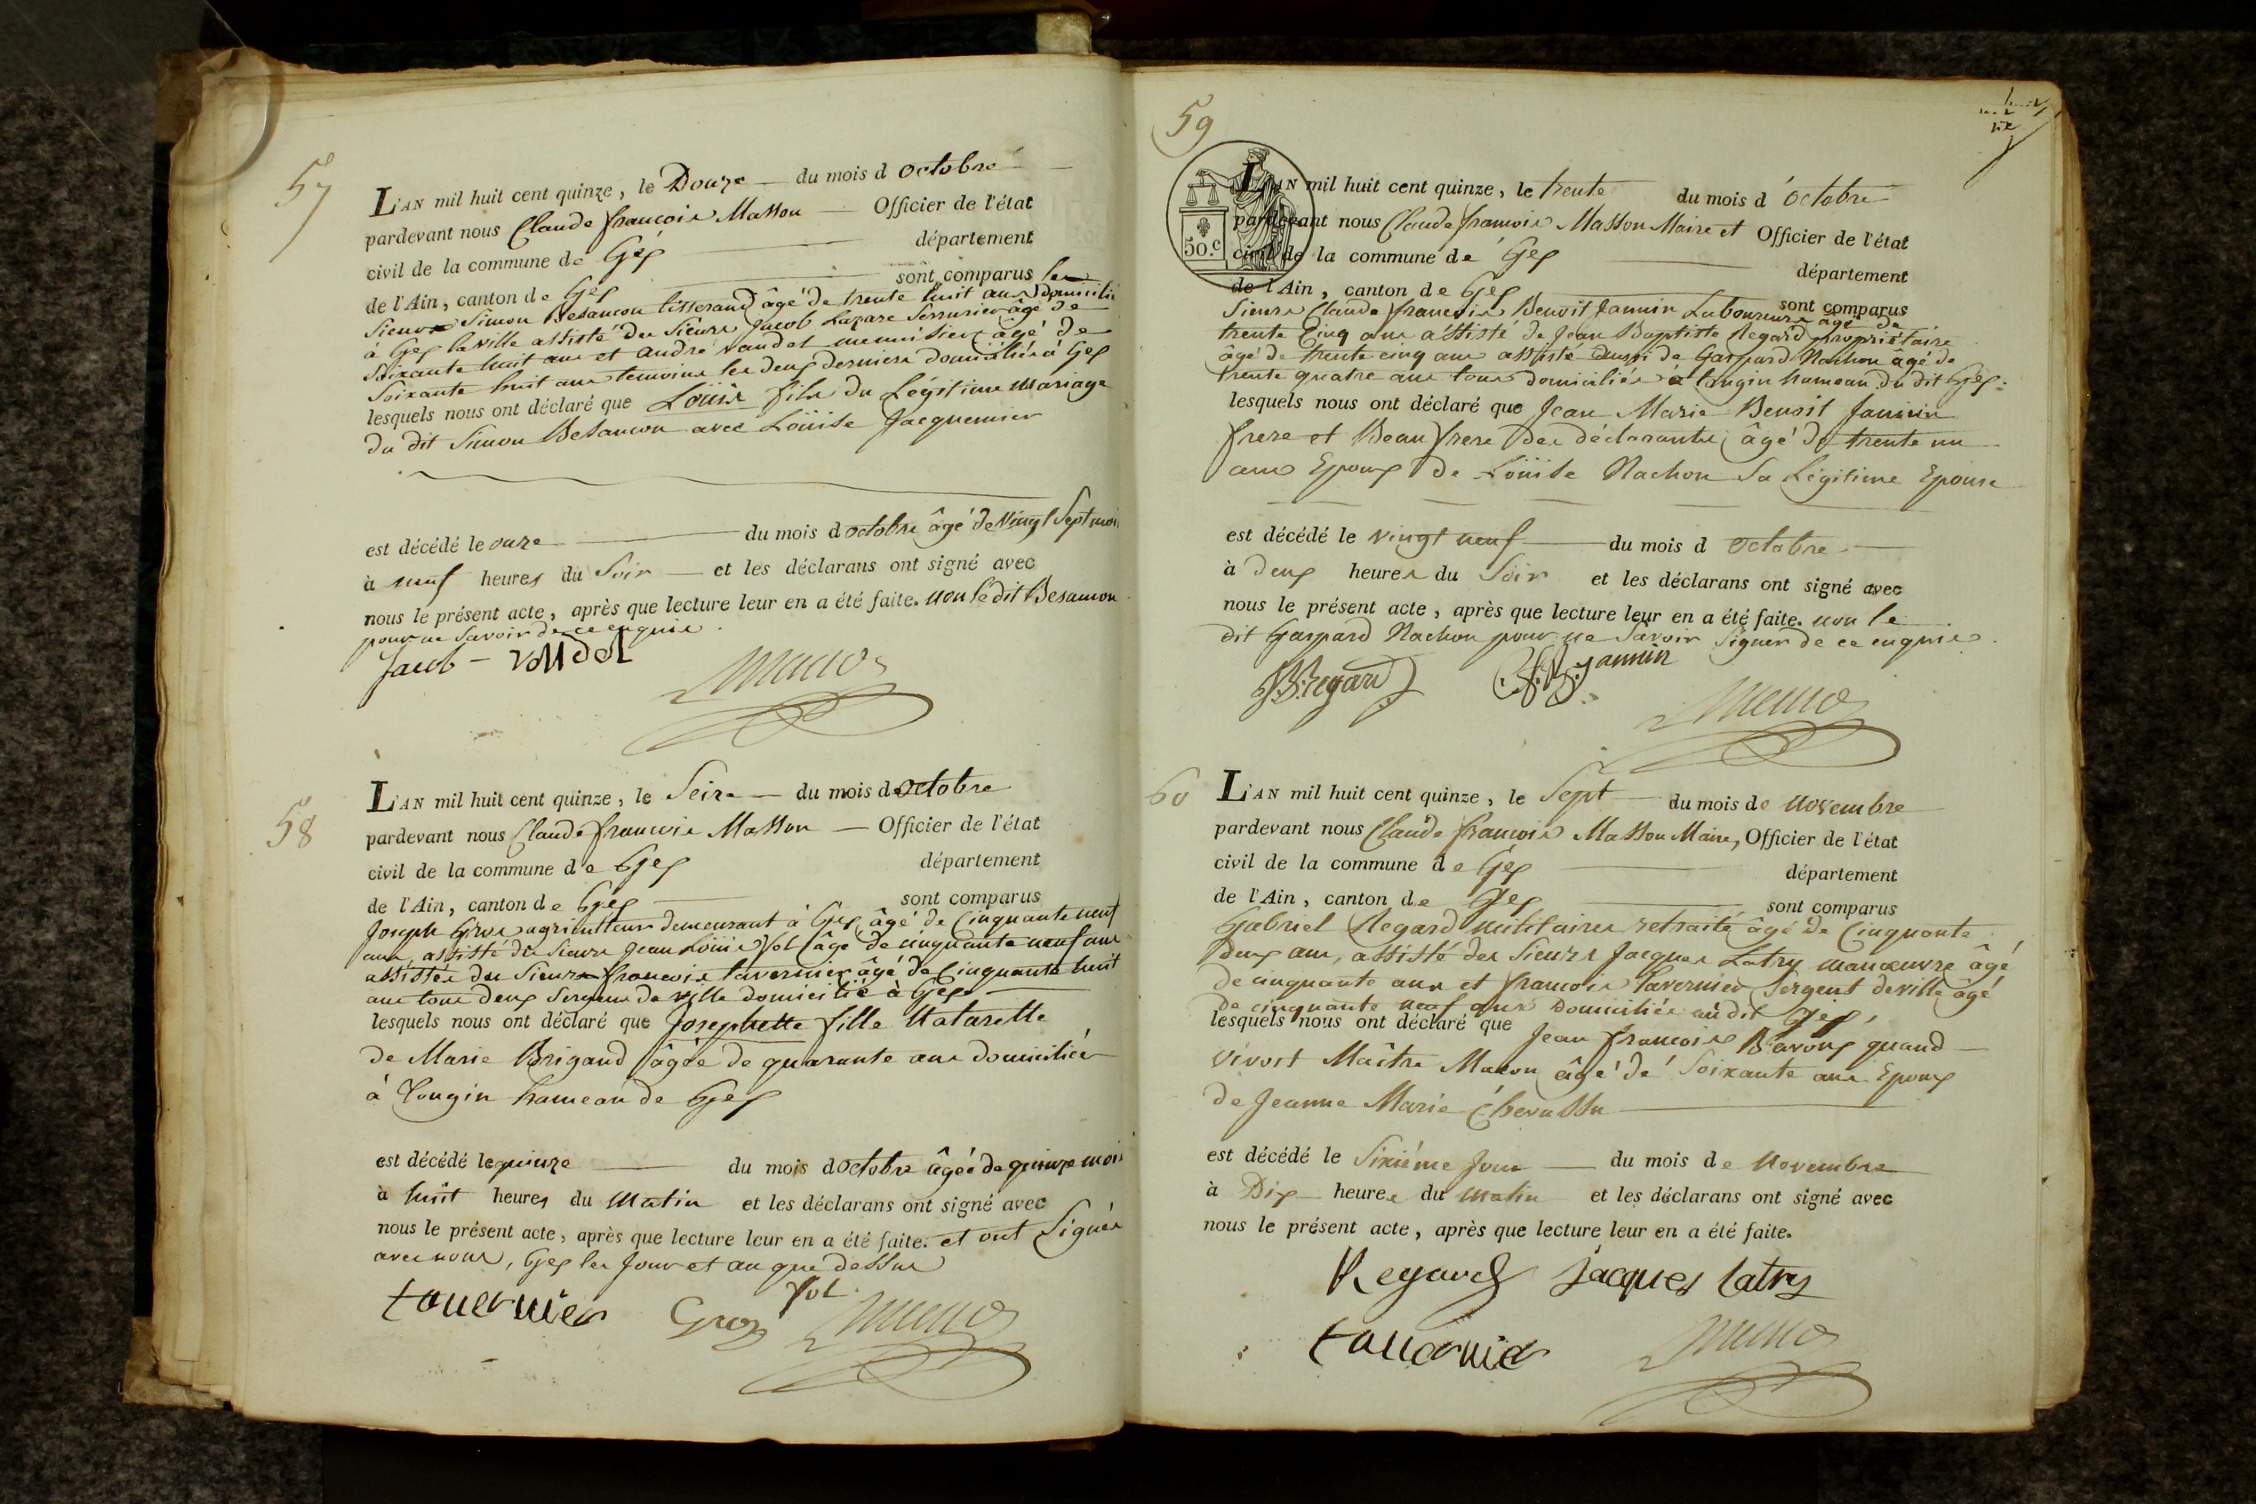 57
L'AN mil huit cent quinze, le Douze du mois d octobre
pardevant nous Claude francois Masson Officier de l'état
civil de la commune de Gex département
de l'Ain, canton de Gex sont comparus les
Sieurs Simon Besancon tisserand âgé de trente huit ans domicilié
à Gex la ville assisté des Sieurs Jacob Lazare Serrurier âgé de
Soixante huit ans et andré vaudet menuisier âgé de
Soixante huit ans temoins les deux derniers domiciliés à Gex
lesquels nous ont déclaré que Loüis fils du Légitime Mariage
du dit Simon Besancon avec Loüise Jacquemier
est décédé le onze du mois d octobre âgé de vingt Sept mois
à neuf heures du Soir et les déclarans ont signé avec
nous le présent acte, après que lecture leur en a été faite. non le dit Besancon
pour ne Savoir de ce enquis.
Jacob - vaudet
58
L'AN mil huit cent quinze, le Seize du mois d octobre
pardevant nous Claude francois Masson Officier de l'état
civil de la commune de Gex département
de l'Ain, canton de Gex sont comparus
Joseph Gros agriculteur demeurant à Gex âgé de Cinquante neuf
ans, assisté des Sieurs Jean Loüis Vol âgé de cinquante neuf ans
assistés du Sieur francois tavernier âgé de Cinquante huit
ans tous deux Sergens de ville domicilié à Gex
lesquels nous ont déclaré que Josephette fille Naturelle
de Marie Brigand âgée de quarante ans domiciliée
à Tougin hameau de Gex
est décédé le quinze du mois d octobre âgée de quinze mois
à huit heures du Matin et les déclarans ont signé avec
nous le présent acte, après que lecture leur en a été faite. et ont Signés
avec nous, Gex les Jour et an que dessus
Vol
tauernier Gros
59
50.c
L'AN mil huit cent quinze, le trente du mois d'octobre
pardevant nous Claude francois Masson Maire et Officier de l'état
civil de la commune de Gex département
de l'Ain, canton de Gex sont comparus
Sieurs Claude francois Benoit Jannin Laboureur âgé de
trente Cinq ans assisté de Jean Baptiste Regard propriétaire
âgé de trente cinq ans assisté aussi de Gaspard Nachon âgé de
trente quatre ans tous domiciliés à tougin hameau du dit Gex:
lesquels nous ont déclaré que Jean Marie Benoit Jannin
frere et Beau frere des déclarants âgé de trente un
ans Epoux de Loüise Nachon Sa Légitime Epouse
est décédé le vingt neuf du mois d octobre
à deux heures du Soir et les déclarans ont signé avec
nous le présent acte, après que lecture leur en a été faite. non le
dit Gaspard Nachon pour ne Savoir Signer de ce enquis.
J.B. Regard C.F.B. Jannin
60
L'AN mil huit cent quinze, le Sept du mois de Novembre
pardevant nous Claude francois Masson Maire, Officier de l'état
civil de la commune de Gex département
de l'Ain, canton de Gex sont comparus
Gabriel Regard militaire retraité âgé de Cinquante
deux ans, assisté des Sieurs Jacques Latry manœuvre âgé
de cinquante ans et francois tavernier Sergent de ville âgé
de cinquante neuf ans domiciliés au dit Gex,
lesquels nous ont déclaré que Jean francois Bavoux quand
vivoit Maître Macon âgé de Soixante ans Epoux
de Jeanne Marie Chevassu
est décédé le Sixiéme Jour du mois de Novembre
à Dix heures du matin et les déclarans ont signé avec
nous le présent acte, après que lecture leur en a été faite.
Regard Jacques Latry
tauernier